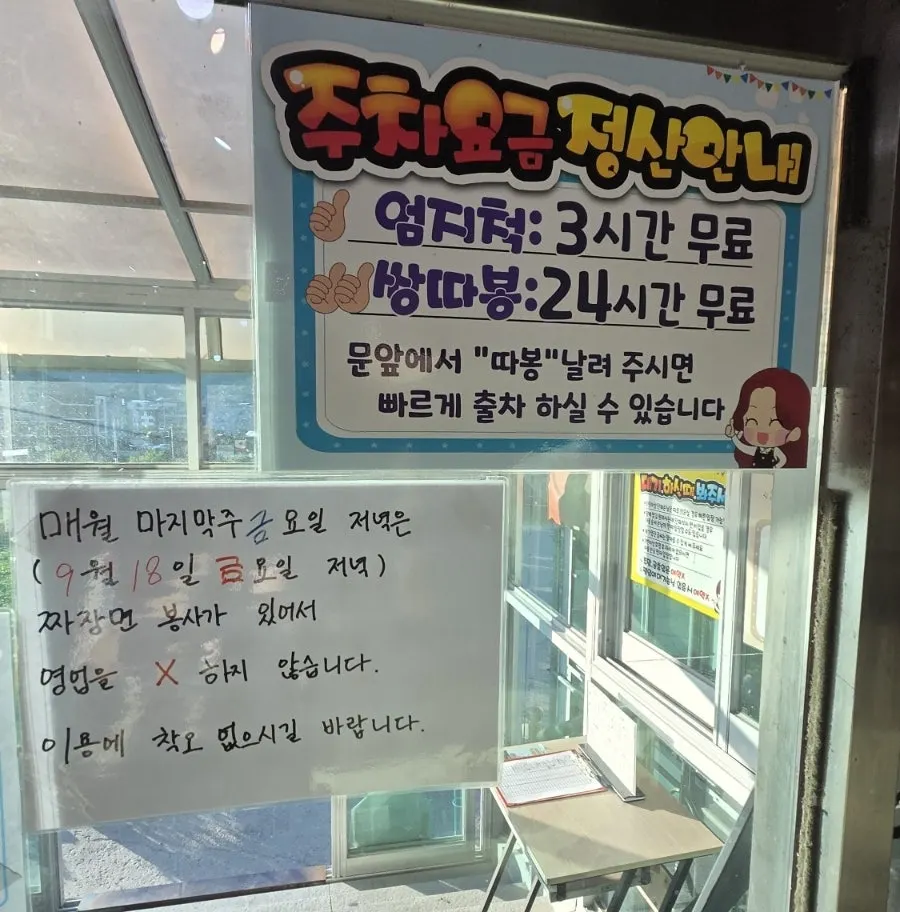 주차요금 정산안내
엄지척: 3시간 무료
쌍따봉:24시간 무료
문앞에서 "따봉"날려 주시면
빠르게 출차 하실 수 있습니다
매월 마지막주 금요일 저녁은
( 9월 18일 금요일 저녁 )
짜장면 봉사가 있어서
영업을 X 하지 않습니다.
이용에 착오 없으시길 바랍니다.